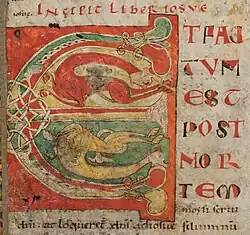 INCIPIT LIBER IOSUE
iosue.
ET FAC
TUM
EST
POST
MOR
TEM
moysi serui
dni: ut loqueret dns ad iosue filium nun